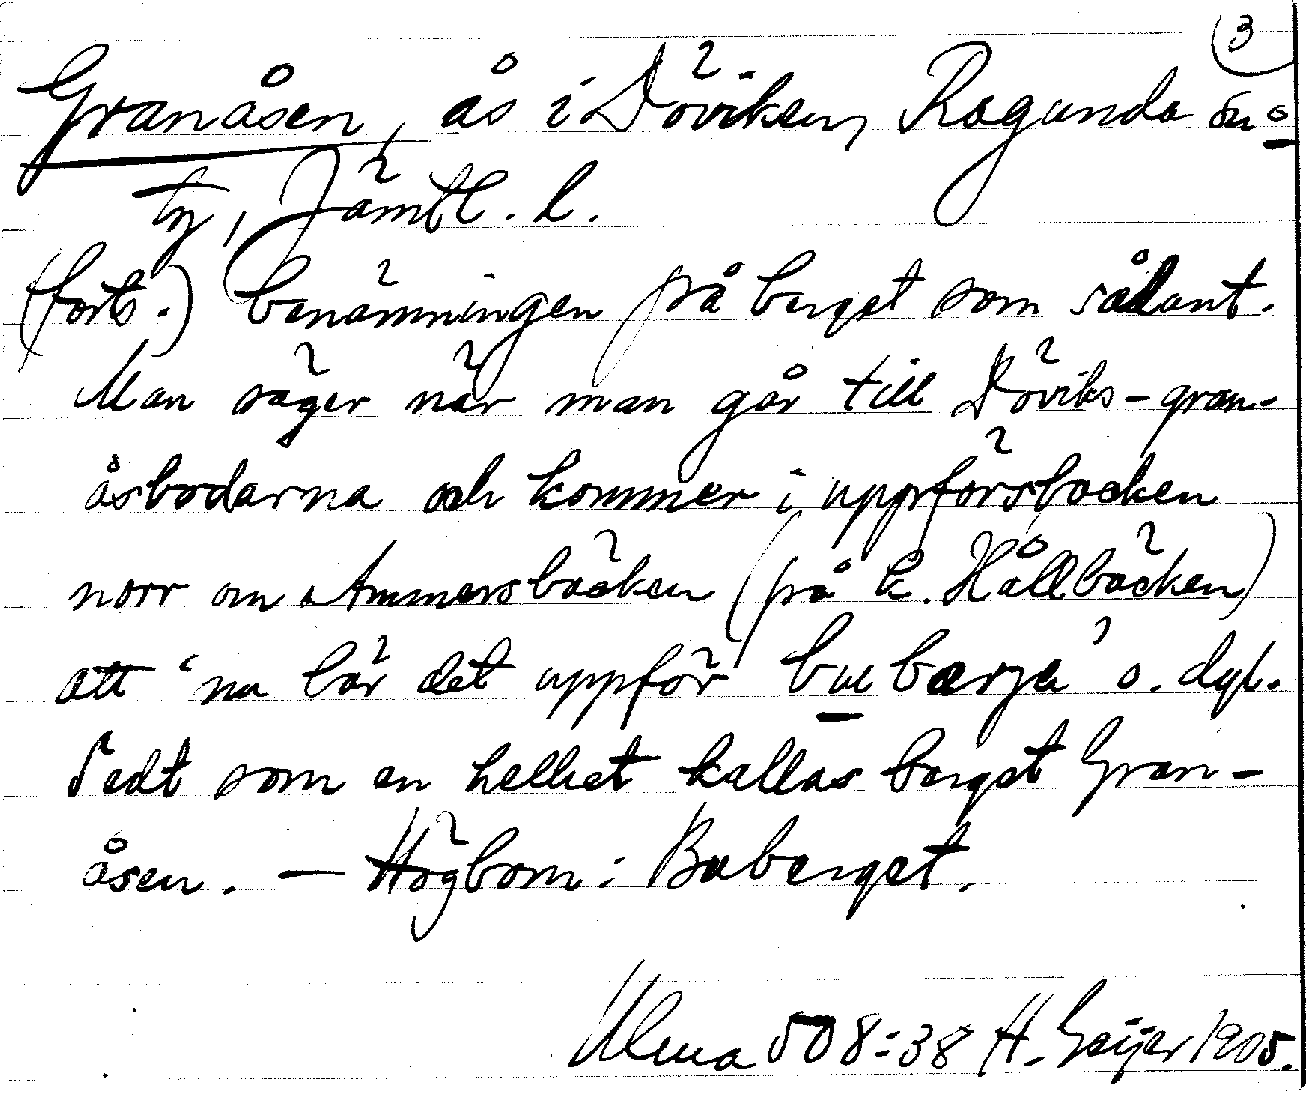 3
Granåsen, ås i Döviken, Ragunda sn o
tg, Jämtl. l.
(forts.) benämningen på berget som sådant.
Man säger när man går till Döviks-gran-
åsbodarna och kommer i uppförsbacken
norr om Ammersbäcken (på k. Hållbäcken)
att 'nu bär det uppför bue bærje' o. dyl.
Sedt som en helhet kallas berget Gran-
åsen. — Högbom: Buberget.
Ulma 508:38 H. Geijer 1905.